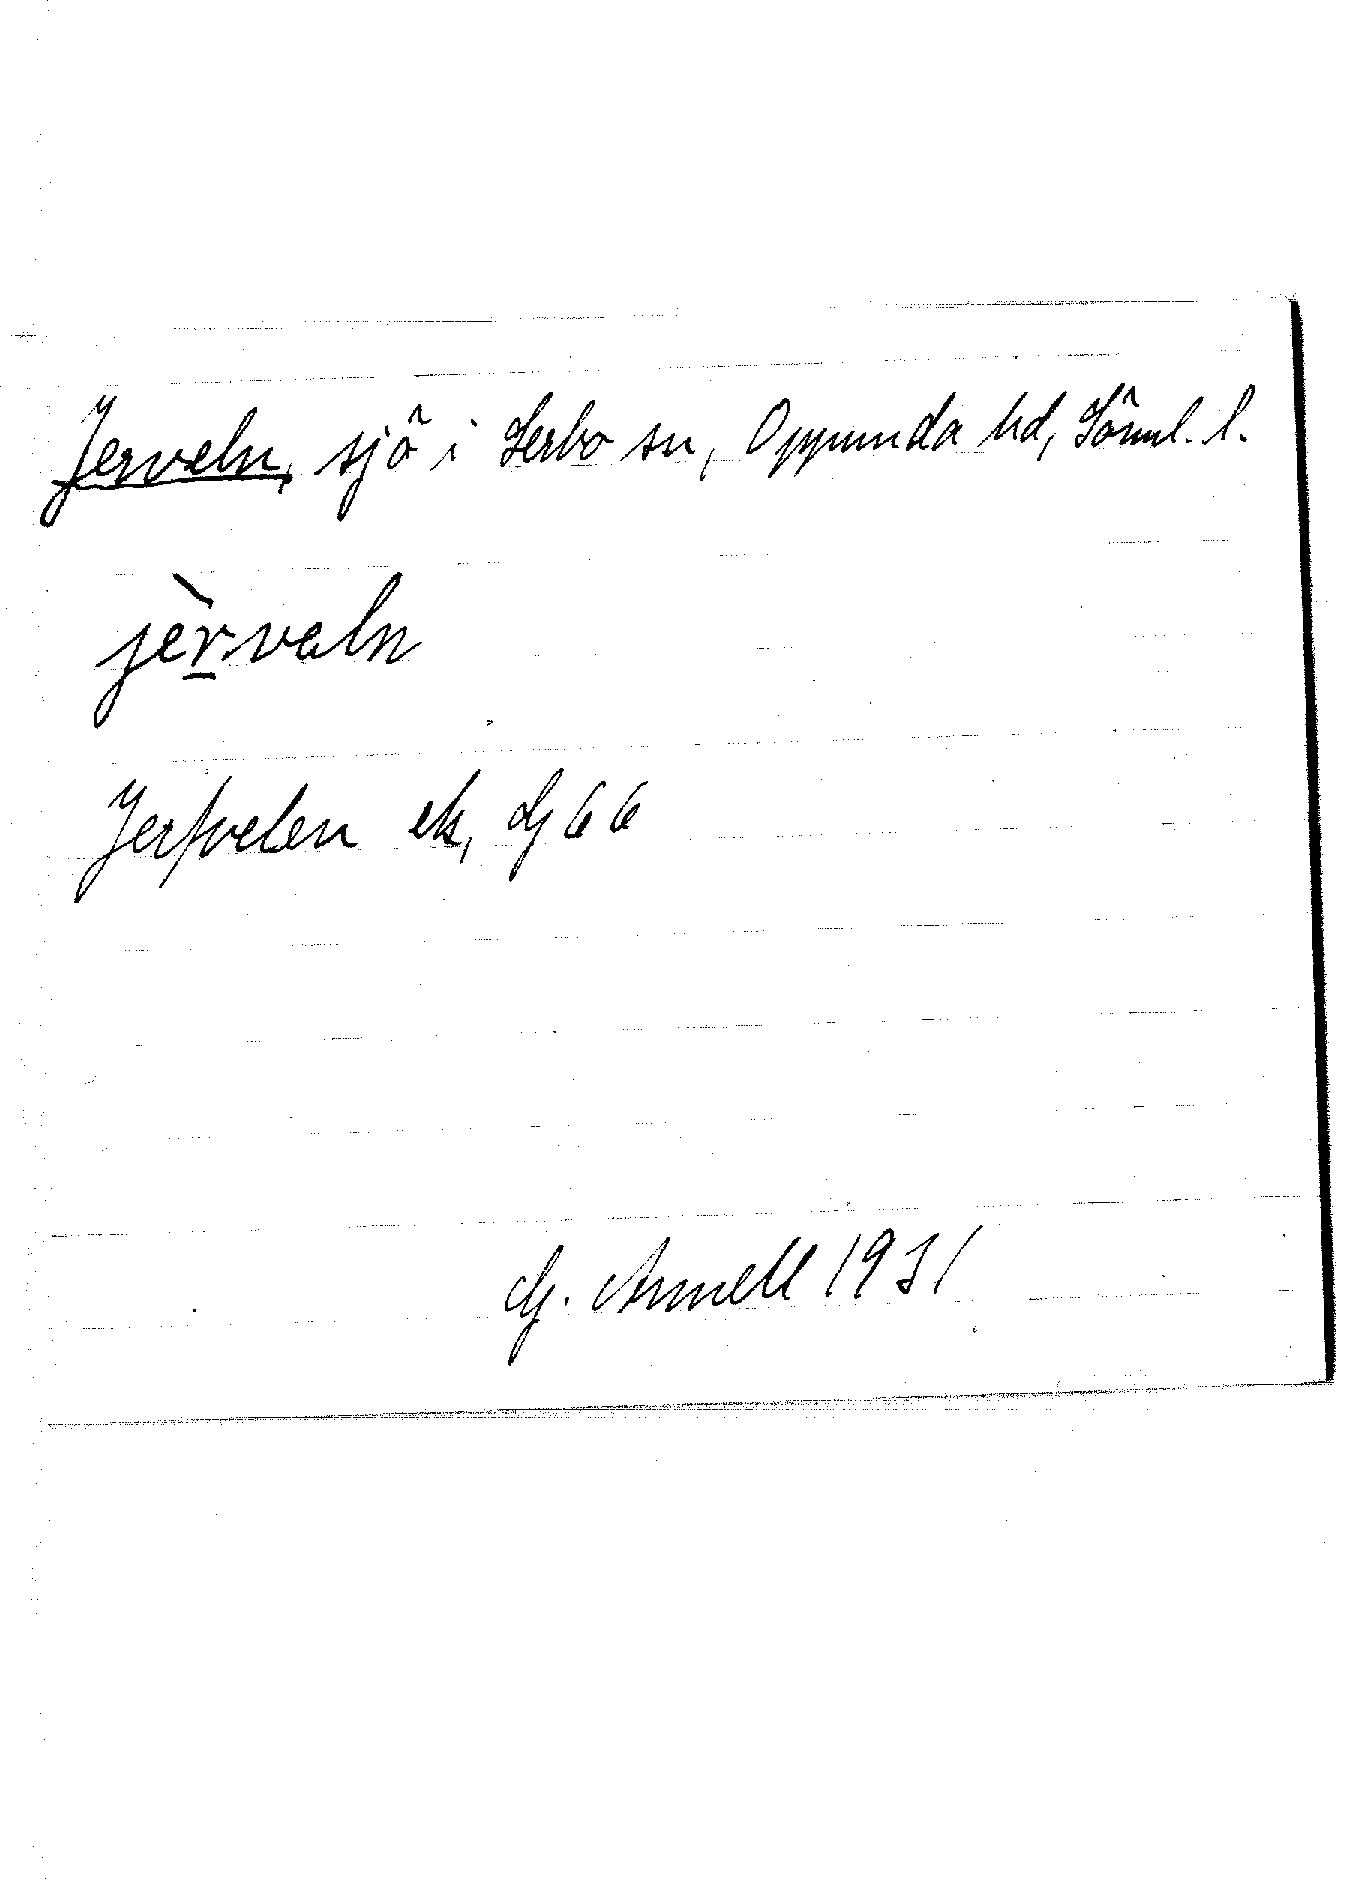 Jerveln, sjö i Lerbo sn, Oppunda hd, Söml. l.
jèrveln
Jerfvelen ek, G 66
G. Annell 1931